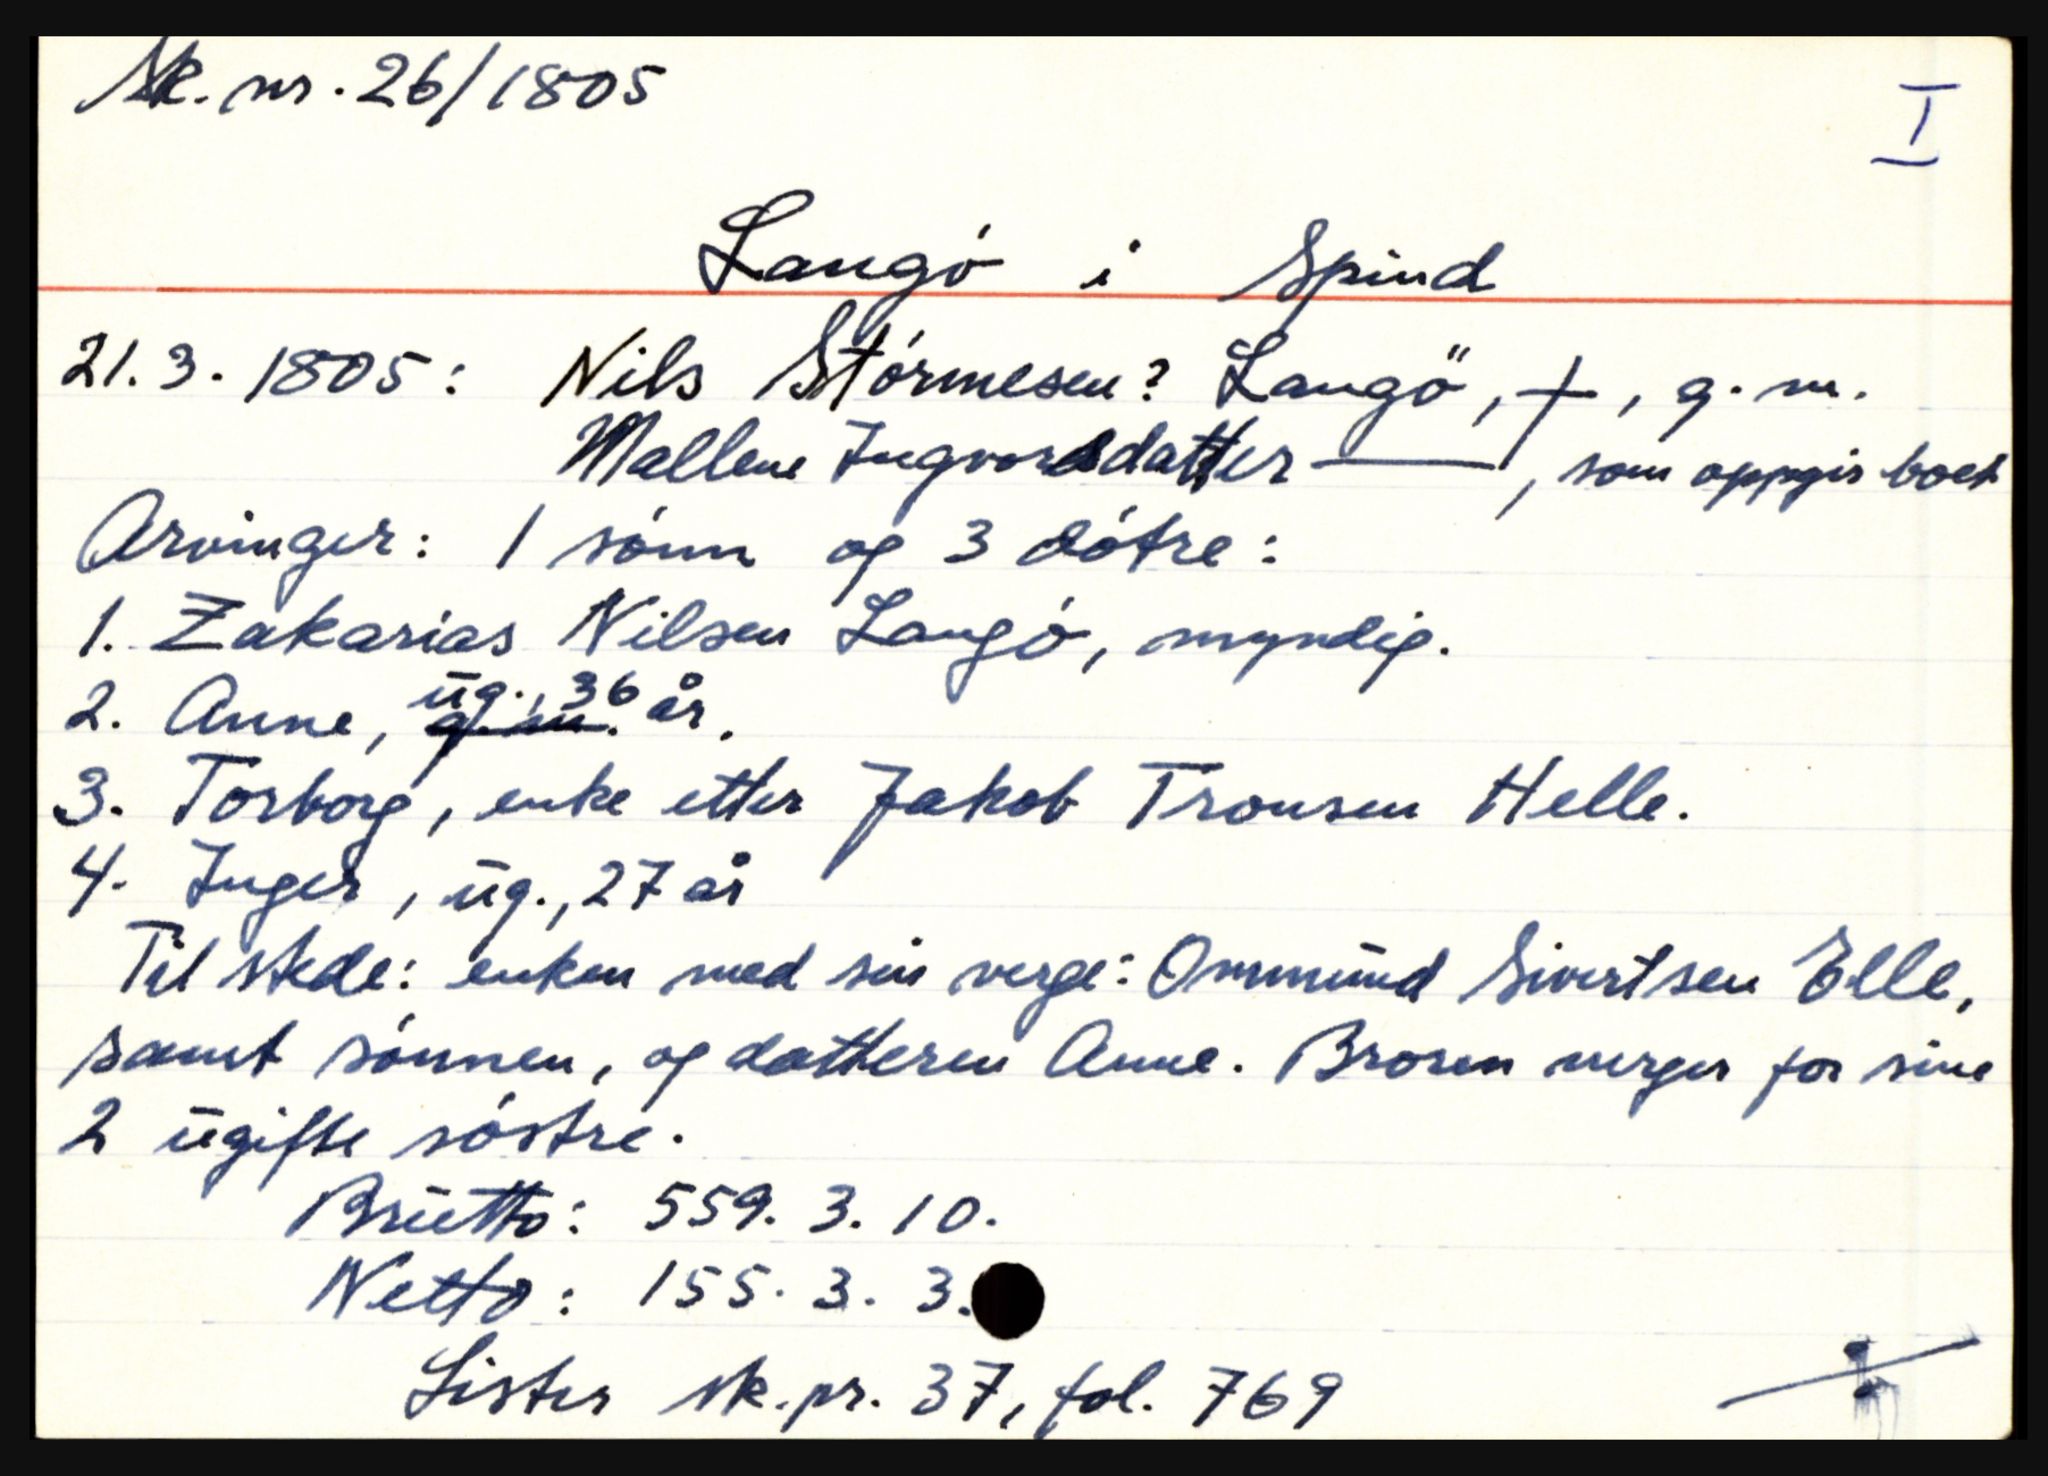 Sk. nr. 26/1805
I
Langó i Spind
21.3.1805: Nils Stórmesen? Langö, +, g. m.
Mallene Ingvorsdatter ——, som oppgir boet
Arvinger: 1 sónn og 3 dótre:
1. Zakarias Nilsen Langó, myndig.
2. Anne, g. m. ūg., 36 år.
3. Torborg, enke etter Jakob Tronsen Helle.
4. Inger, ūg., 27 år
Til stede: enken med sin verge: Ommūnd Sivertsen Elle,
samt sónnen, og datteren Anne. Broren verger for sine
2 ūgifte sóstre.
Brūtto: 559. 3. 10.
Netto: 155. 3. 3.
Lister sk.pr. 37, fol. 769